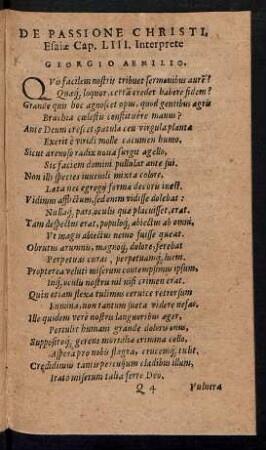 DE PASSIONE CHRISTI,
Esaiæ Cap. LIII. Interprete
GEORGIO AEMILIO.
QVo facilem nostris tribuet sermonibus aurẽ?
Quæq; loquor, certã credet habere fidem?
Grande quis hoc agnoscet opus, quod gentibus agris
Brachia cælesti constituere manu?
Ante Deum crescet, patula ceu virgula planta
Exerit è viridi molle cacumen humo.
Sicut arenoso radix noua surgit agello,
Sic faciem domini pullulat ante sui.
Non illi species iuuenili mixta colore,
Lata nec egregij forma decoris inest.
Vidimus afflictum, sed enim vidisse dolebat:
Nullaq; pars, oculis quæ placuisset, erat.
Tam despectus erat, populoq; abiectus ab omni,
Vt magis abiectus nemo fuisse queat.
Obrutus ærumnis, magnoq; dolore, ferebat
Perpetuas curas, perpetuamq; luem.
Propterea veluti miserum contempsimus ipsum,
Inq; oculis nostris nil nisi crimen erat.
Quin etiam flexa tulimus ceruice retrorsum
Lumina, non tantum iusta videre nefas.
Ille quidem verè nostri languoribus æger,
Pertulit humani grande doloris onus,
Suppositoq; gerens mortalia crimina collo,
Aspera pro nobis flagra, crucemq; tulit.
Credidimus tamen percussum cladibus illum,
Irato miserum talia ferre Deo.
Q 4
Vulnera